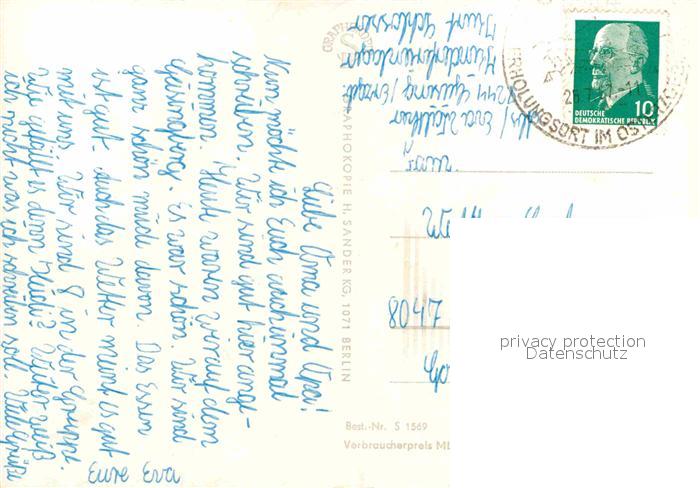 Liebe Oma und Opa!
Nun möchte ich Euch auch einmal
schreiben. Wir sind gut hier ange-
kommen. Heute waren wir auf dem
Geisingberg. Es war schön. Wir sind
ganz schön müde davon. Das Essen
ist gut. Auch das Wetter meint es gut
mit uns. Wir sind 8 in der Gruppe.
Wie gefällt es denn Heidi? Weiter weiß
ich nicht was ich schreiben soll. Viele Grüße
Eure Eva
GRAPHOKOPIE H. SANDER KG, 1071 BERLIN
Abs/ Eva
Geising / Erzgb.
Kurt Schlosser
10
DEUTSCHE
DEMOKRATISCHE REPUBLIK
ERHOLUNGSORT IM OST
8047
Best.-Nr. S 1569
Verbraucherpreis
privacy protection
Datenschutz